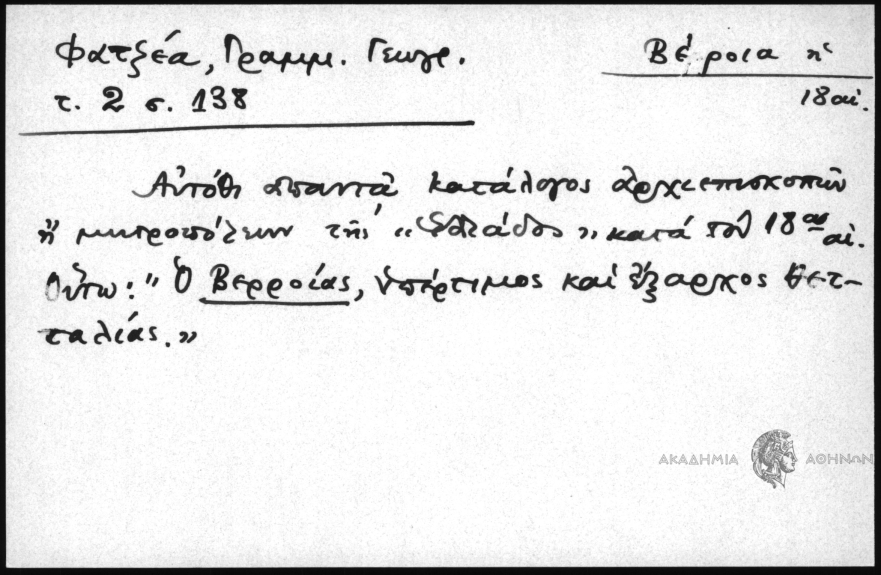 Φατζέα, Γραμμ. Γεωγρ.
τ. 2 σ. 138
Βέροια ἡ
18 αἰ.
Αὐτόθι ἀπαντᾶ κατάλογος ἀρχιεπισκοπῶν
ἢ μητροπόλεων τῆς "Ἑλλάδος" κατὰ τὸν 18ον αἰ.
Οὕτω: "Ὁ Βερροίας, ὑπέρτιμος καὶ ἔξαρχος Θετ-
ταλίας."
ΑΚΑΔΗΜΙΑ ΑΘΗΝΩΝ